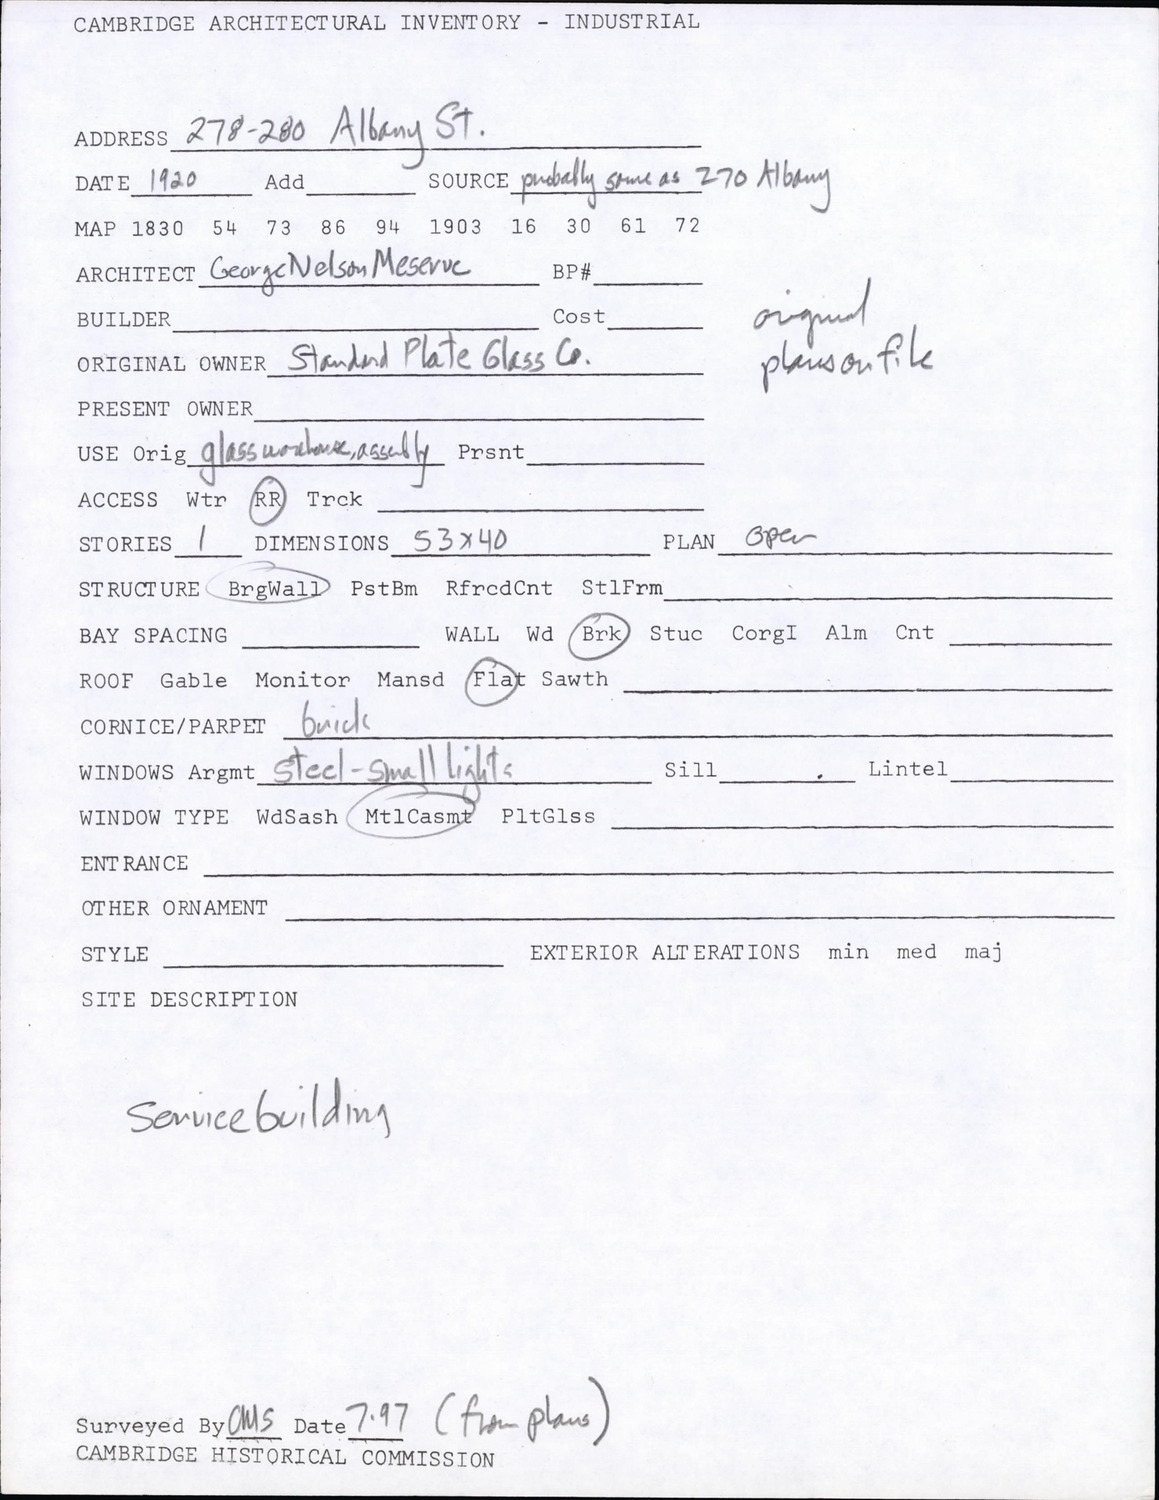 CAMBRIDGE ARCHITECTURAL INVENTORY - INDUSTRIAL
ADDRESS 278-280 Albany St.
DATE 1920 Add SOURCE probably same as 270 Albany
MAP 1830 54 73 86 94 1903 16 30 61 72
ARCHITECT George Nelson Meserve BP#
BUILDER Cost original
ORIGINAL OWNER Standard Plate Glass Co. plans on file
PRESENT OWNER
USE Orig glass warehouse, assembly Prsnt
ACCESS Wtr RR Trck
STORIES 1 DIMENSIONS 53x40 PLAN open
STRUCTURE BrgWall PstBm RfrcdCnt StlFrm
BAY SPACING WALL Wd Brk Stuc CorgI Alm Cnt
ROOF Gable Monitor Mansd Flat Sawth
CORNICE/PARPET brick
WINDOWS Argmt steel-small lights Sill Lintel
WINDOW TYPE WdSash MtlCasmt PltGlss
ENTRANCE
OTHER ORNAMENT
STYLE EXTERIOR ALTERATIONS min med maj
SITE DESCRIPTION
Service building
Surveyed By CMS Date 7.97 (from plans)
CAMBRIDGE HISTORICAL COMMISSION